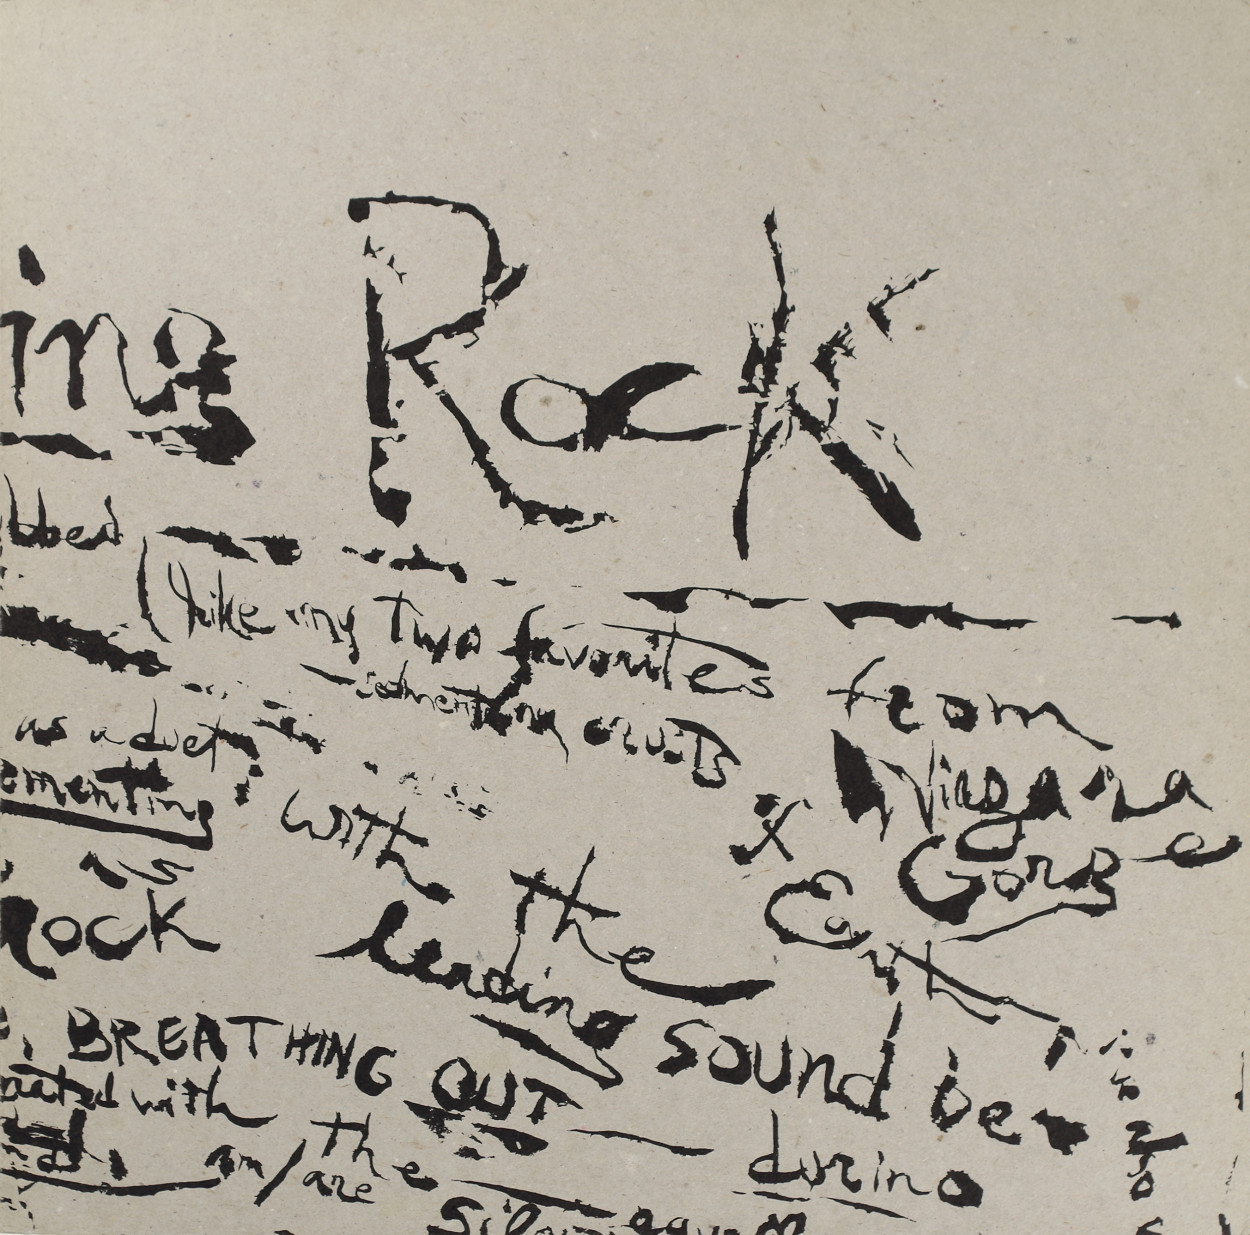 ing Rock
bbed
(like my two favorites from
sedimentary crusts
Niagara
as a duet
ementing
with
X
Gorge
as
the
Earth
Rock
leading
sound be
BREATHING OUT
with
during
the
am/are